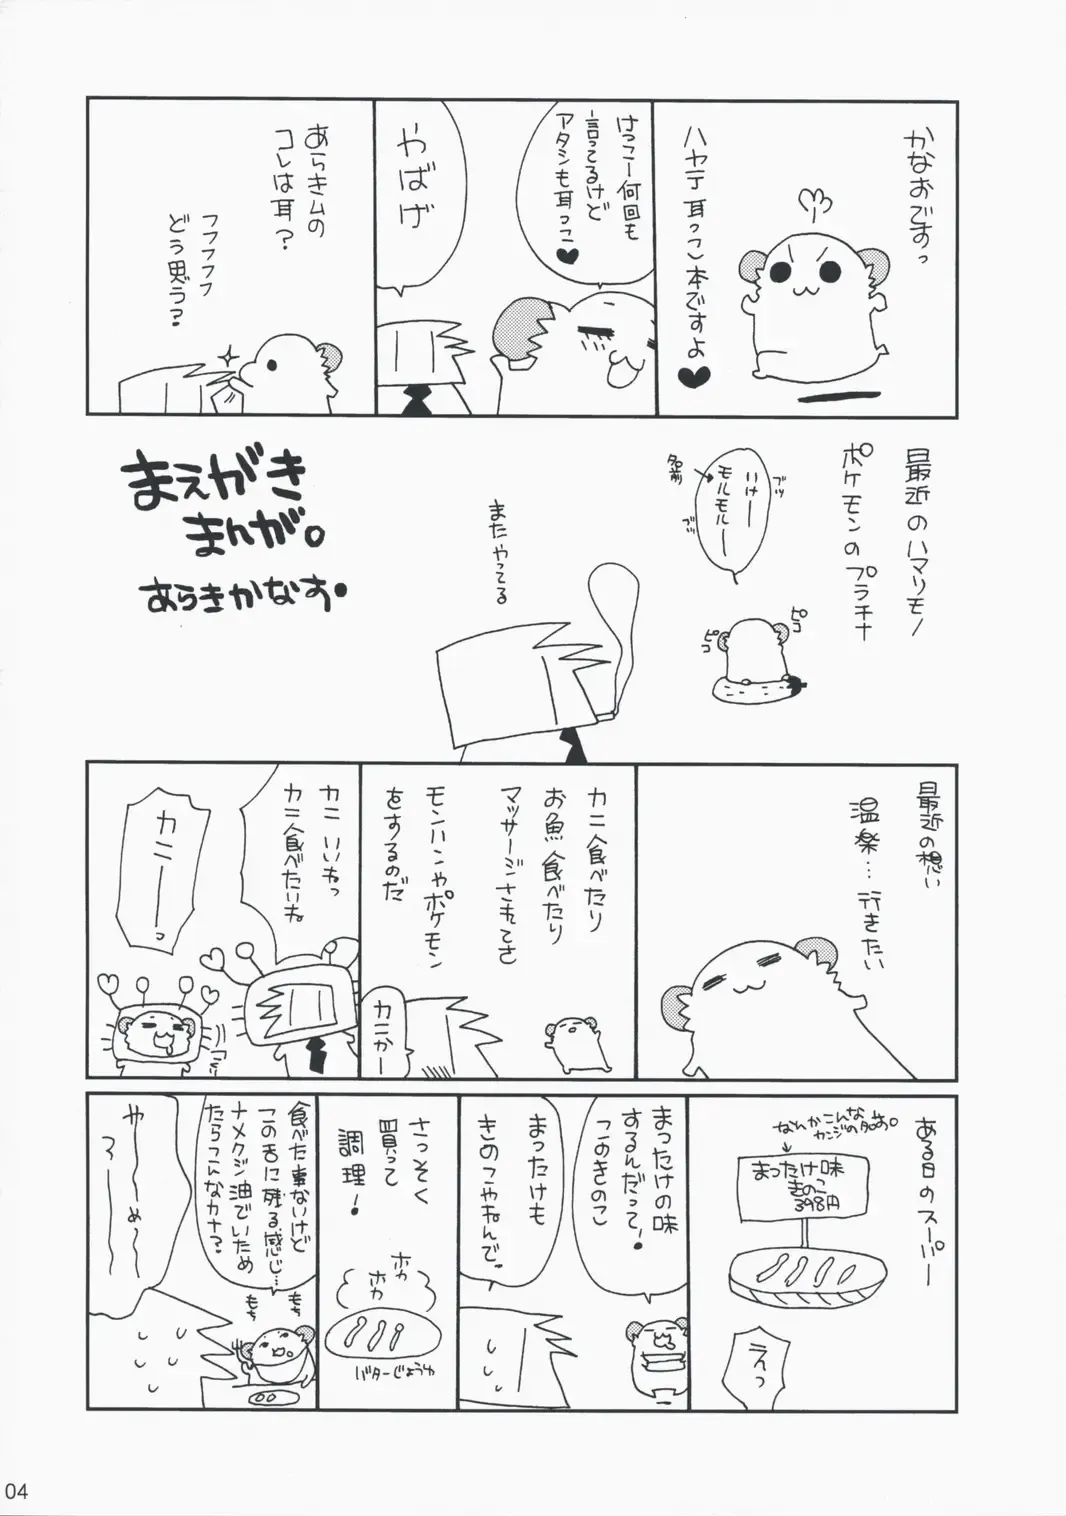 かなおですっ
ハヤテ耳っこ本ですよ♥
けっこー何回も
言ってるけど
アタシも耳っこ♥
やばげ
あらきムの
コレは耳?
フフフフ
どう思う?
まえがき
まんが。
あらきかなお。
最近のハマリモノ
ポケモンのプラチナ
いけー
モルモルー
名前
ブツ
ブツ
ピコ
ピコ
またやってる
最近の想い
温泉…行きたい
カニ食べたり
お魚食べたり
マッサージされてさ
モンハンやポケモン
をするのだ
カニかー
カニいいねっ
カニ食べたいね
カニーっ
ある日のスーパー
なんかこんな
カンジの名前。
まったけ味
きのこ
398円
えっ
まったけの味
するんだって!
このきのこ
まったけも
きのこやねんで。
さっそく
買って
調理!
ホカ
ホカ
バターじょうゆ
食べた事ないけど
この舌に残る感じ…
ナメクジ油でいため
たらこんなカナ?
もち
もち
やーめーろー
04